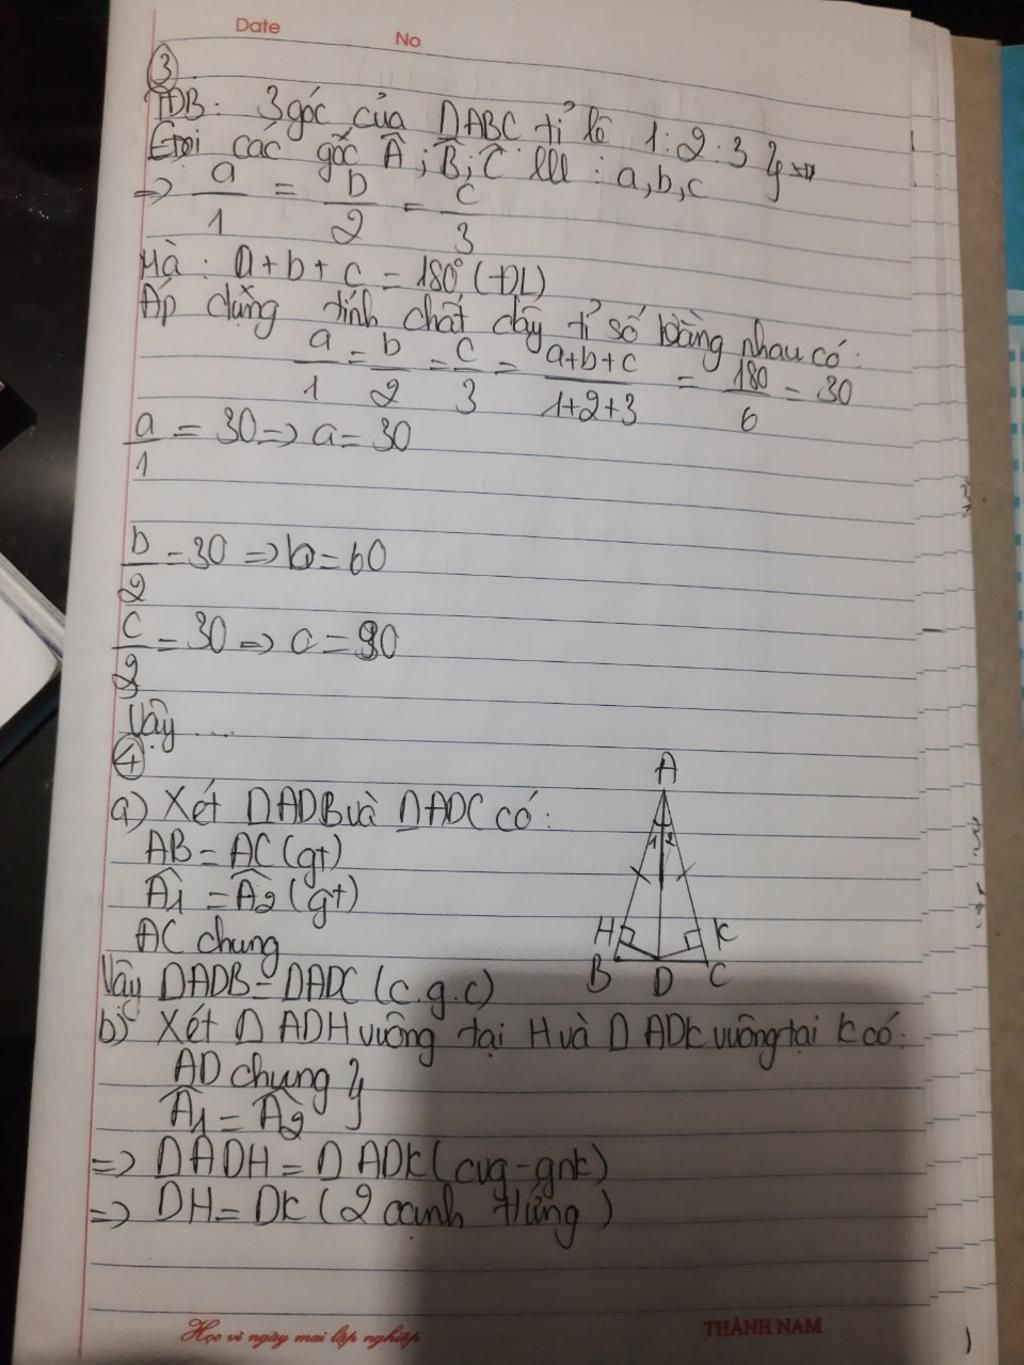 Date No
3
TĐB: 3 góc của ΔABC tỉ lệ 1:2:3 }
Gọi các góc Â; B̂; Ĉ lll : a,b,c
=> a/1 = b/2 = c/3
Mà : a+b+c = 180° (ĐL)
Áp dụng tính chất dãy tỉ số bằng nhau có:
a/1 = b/2 = c/3 = a+b+c/1+2+3 = 180/6 = 30
a/1 = 30 => a = 30
b/2 = 30 => b = 60
c/2 = 30 => c = 90
Vậy ...
4
a) Xét ΔADB và ΔADC có:
AB = AC (gt)
Â1 = Â2 (gt)
AC chung
Vậy ΔADB = ΔADC (c.g.c)
A
1 2
H K
B D C
b) Xét Δ ADH vuông tại H và Δ ADK vuông tại K có:
AD chung }
Â1 = Â2
=> ΔADH = ΔADK (cvg-gnk)
=> DH = DK (2 cạnh t/ứng)
Học vì ngày mai lập nghiệp THÀNH NAM